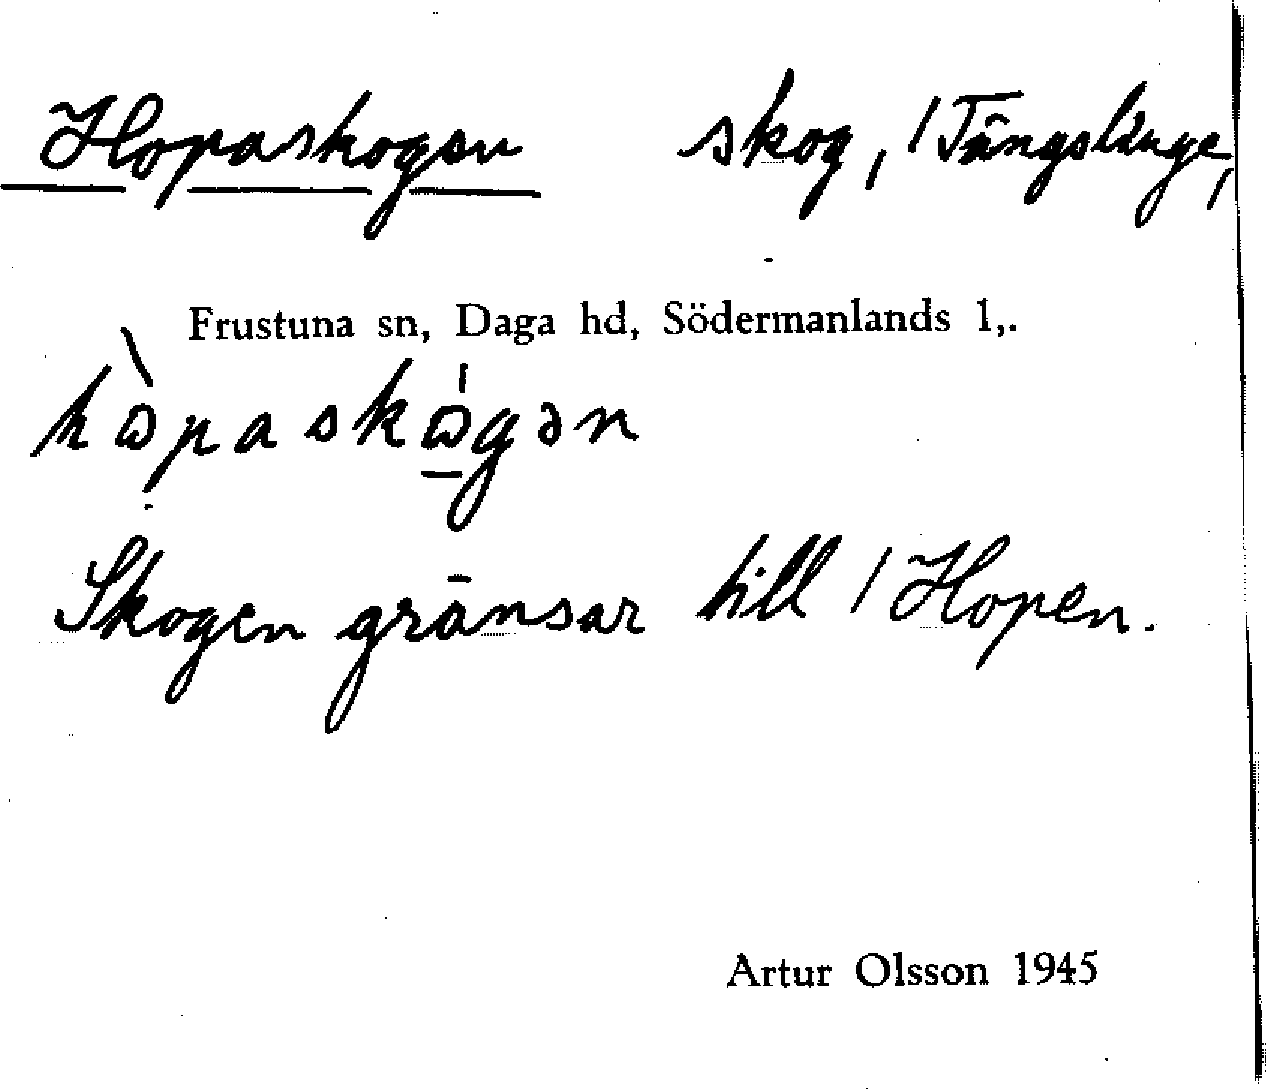 Hopaskogen skog, /Tängslinge,
Frustuna sn, Daga hd, Södermanlands l,.
Skogen gränsar till /Hopen.
Artur Olsson 1945